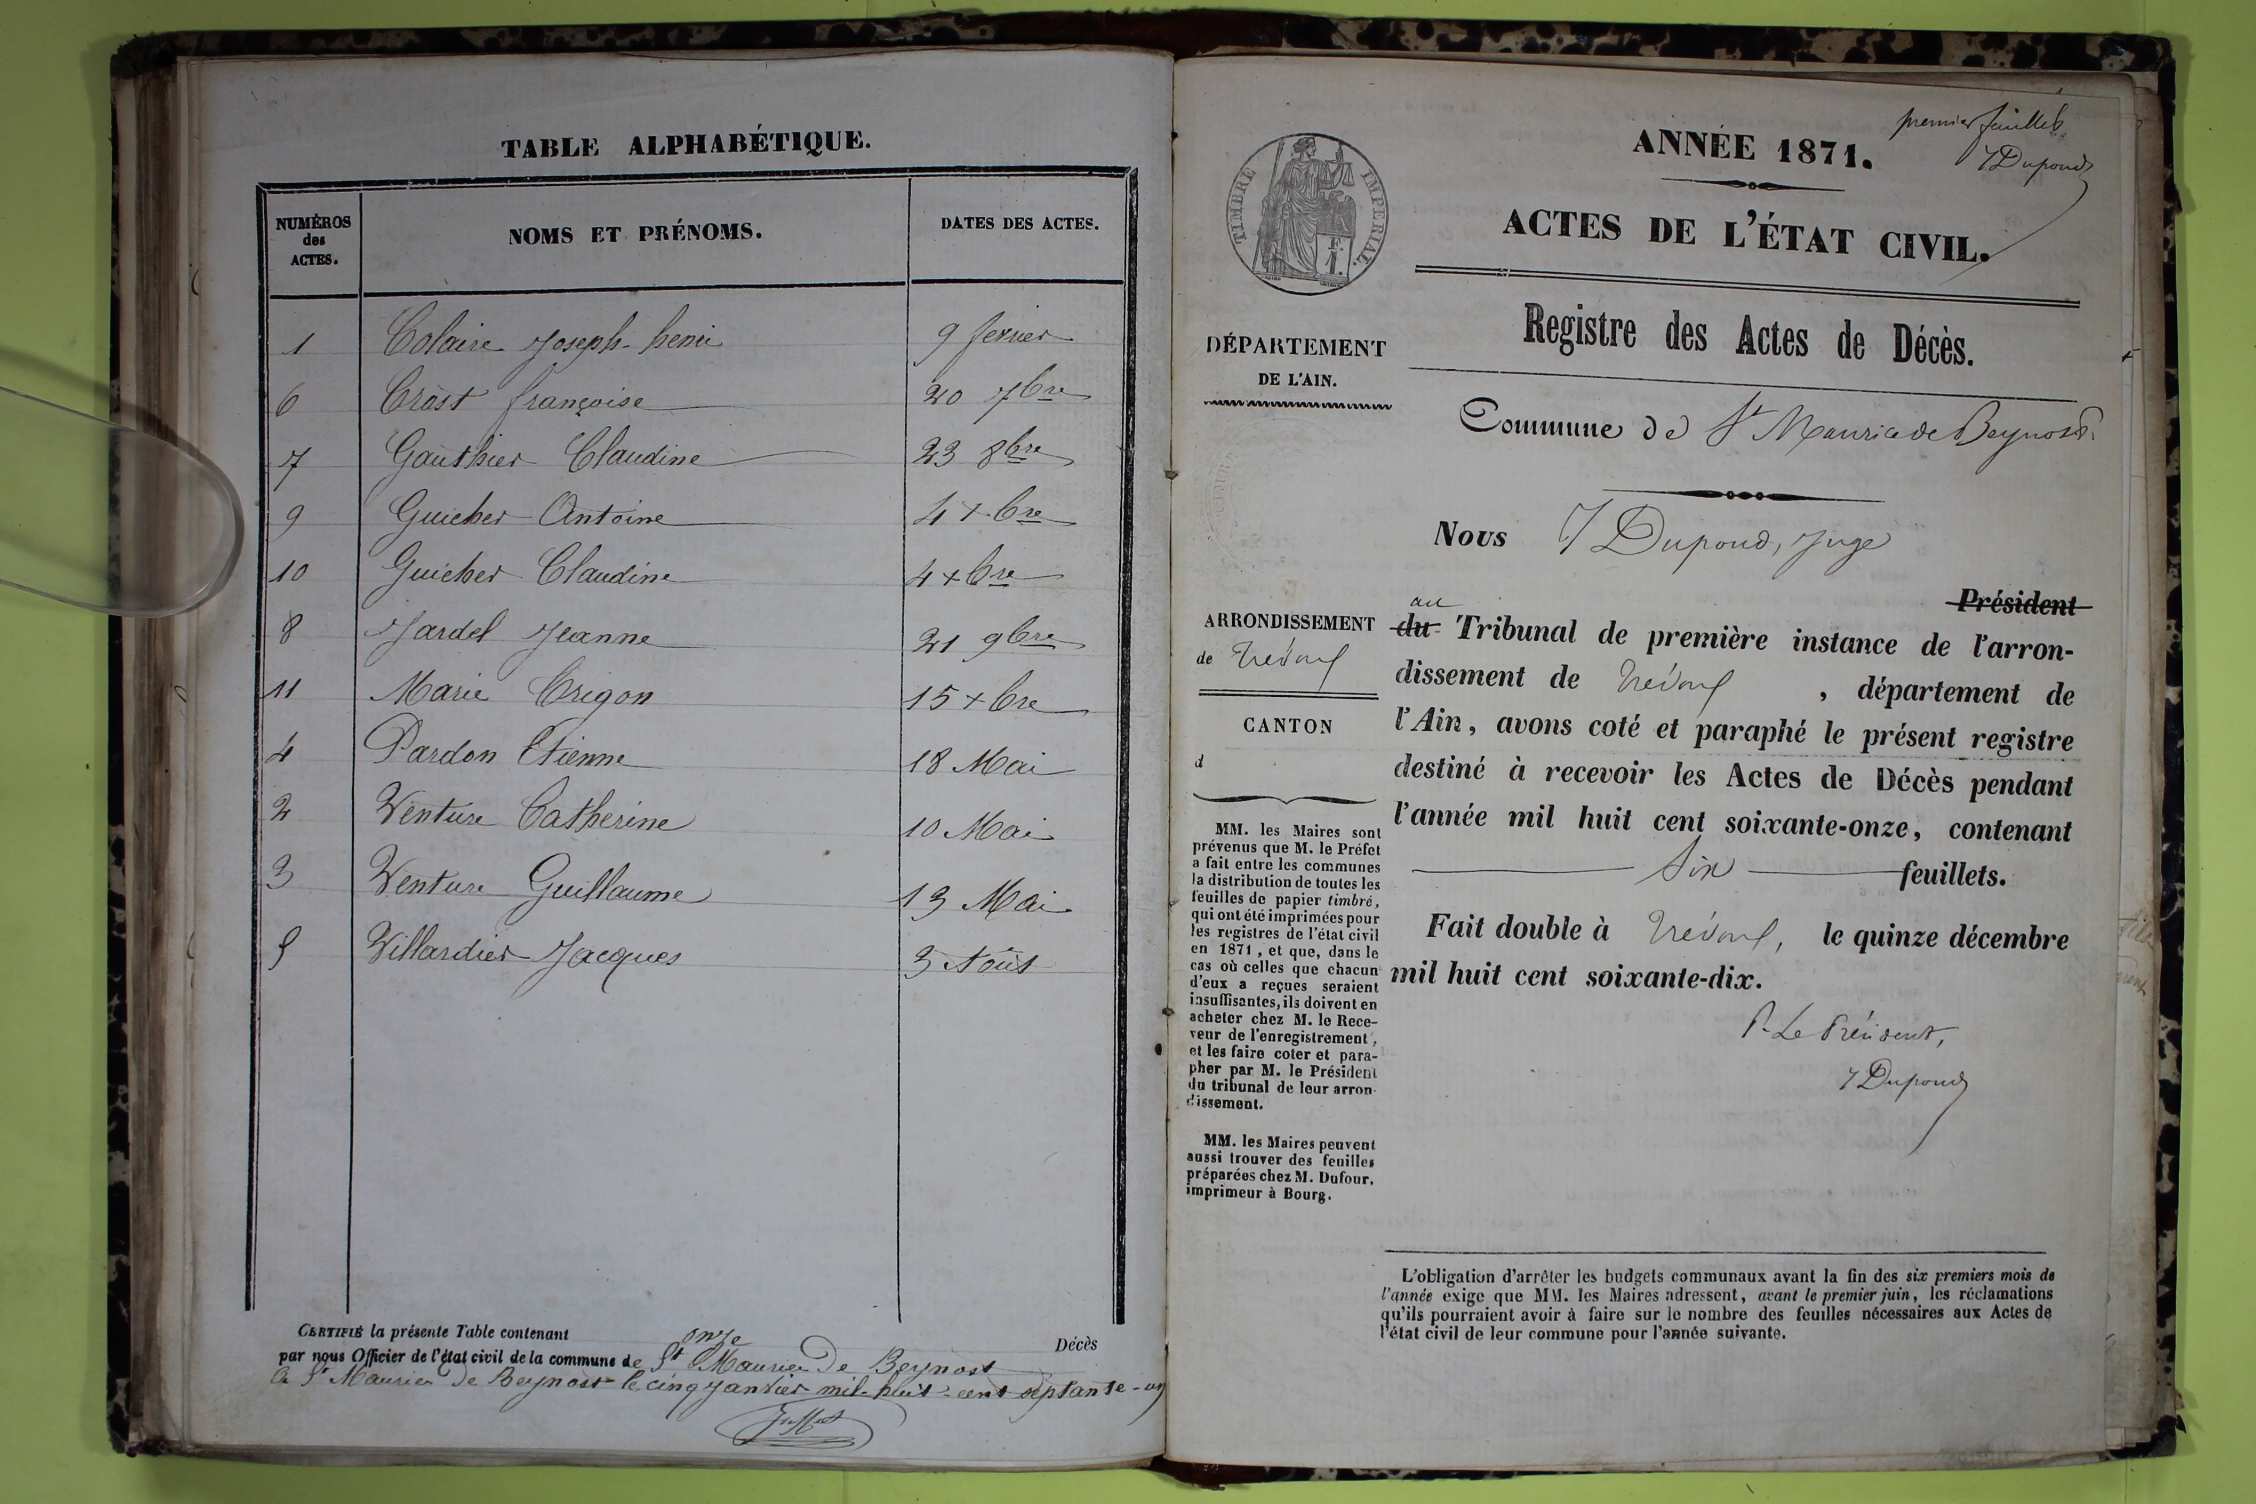 TABLE ALPHABÉTIQUE.
NUMÉROS des ACTES. NOMS ET PRÉNOMS. DATES DES ACTES.
1 Colaire Joseph-henri 9 fevrier
6 Cröst françoise 20 7bre
7 Gauthier Claudine 23 8bre
9 Guicher Antoine 4 Xbre
10 Guicher Claudine 4 Xbre
8 Jardel Jeanne 21 9bre
11 Marie Crigon 15 Xbre
4 Pardon Etienne 18 Mai
2 Venture Catherine 10 Mai
3 Venture Guillaume 13 Mai
5 Villardier Jacques 3 Aout
CERTIFIÉ la présente Table contenant onze Décès
par nous Officier de l'état civil de la commune de St Maurice De Beynost
a St Maurice de Beynost le cinq janvier mil-huit-cent septante-un
premier feuillet
J Dupond
ANNÉE 1871.
ACTES DE L'ÉTAT CIVIL.
TIMBRE IMPÉRIAL.
1 F.
Registre des Actes de Décès.
DÉPARTEMENT
DE L'AIN.
Commune de St Maurice de Beynost
Nous J Dupond, juge
Président
au
du Tribunal de première instance de l'arron-
dissement de Trévoux, département de
l'Ain, avons coté et paraphé le présent registre
destiné à recevoir les Actes de Décès pendant
l'année mil huit cent soixante-onze, contenant
Six feuillets.
Fait double à Trévoux, le quinze décembre
mil huit cent soixante-dix.
P. Le Président,
J Dupond
ARRONDISSEMENT
de Trévoux
CANTON
d
MM. les Maires sont
prévenus que M. le Préfet
a fait entre les communes
la distribution de toutes les
feuilles de papier timbré,
qui ont été imprimées pour
les registres de l'état civil
en 1871, et que, dans le
cas où celles que chacun
d'eux a reçues seraient
insuffisantes, ils doivent en
acheter chez M. le Rece-
veur de l'enregistrement,
et les faire coter et para-
pher par M. le Président
du tribunal de leur arron-
dissement.
MM. les Maires peuvent
aussi trouver des feuilles
préparées chez M. Dufour,
imprimeur à Bourg.
L'obligation d'arrêter les budgets communaux avant la fin des six premiers mois de
l'année exige que MM. les Maires adressent, avant le premier juin, les réclamations
qu'ils pourraient avoir à faire sur le nombre des feuilles nécessaires aux Actes de
l'état civil de leur commune pour l'année suivante.